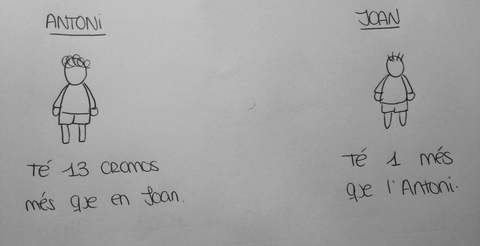 ANTONI
JOAN
Té 13 cromos
més que en Joan.
Té 1 més
que l'Antoni.